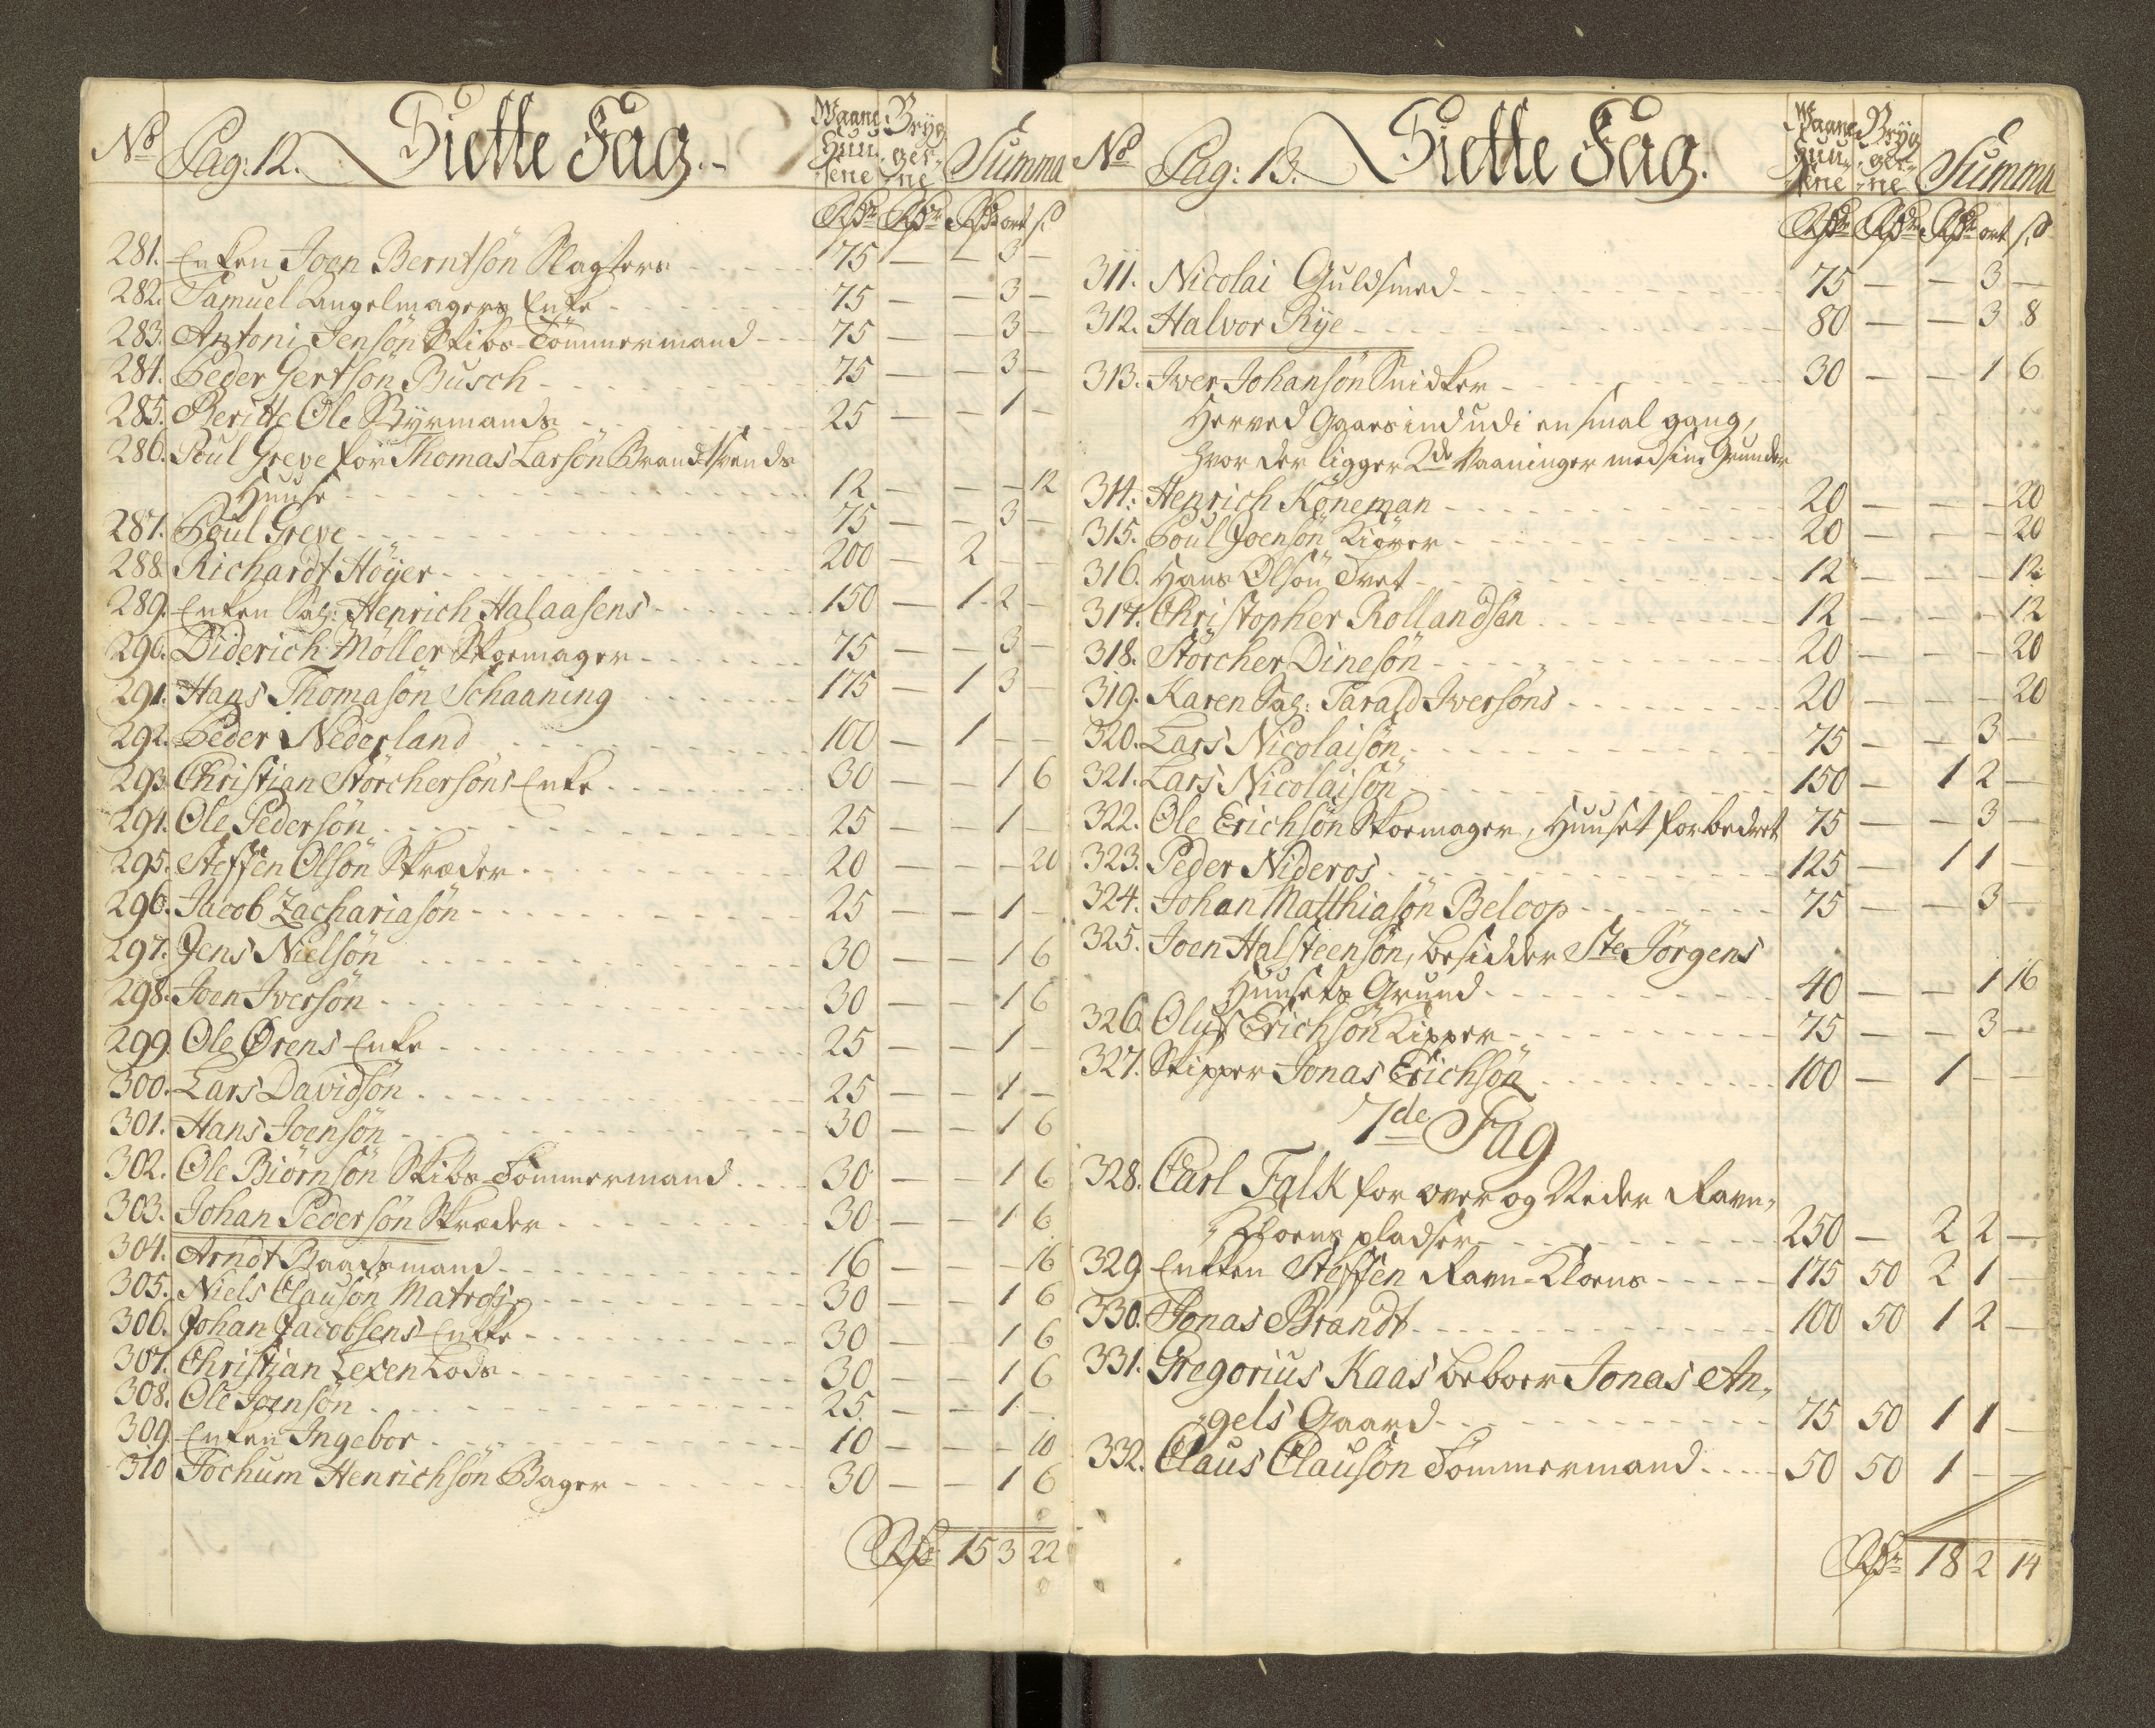 No Pag: 12. Siette Fag. Waane Huusene Bryggerne Summa
Rdr Rdr Rdr ort s
281. Enken Joen Berntsön Slagters 75 — — 3 —
282. Samuel Langelmagers Enke 75 — — 3 —
283. Antoni Jensön Skibs-Tömmermand 75 — — 3 —
284. Peder Gertsön Busch 75 — — 3 —
285. Beritte Ole Styrmands 25 — — 1 —
286. Poul Greve for Thomas Larsön Brandtsvends
Huuse 12 — — — 12
287. Poul Greve 75 — — 3 —
288. Richardt Höyer 200 — 2 — —
289. Enken Sal: Henrich Halaasens 150 — 1 2 —
290. Diderich Möller Skoemager 75 — — 3 —
291. Hans Thomasön Schaaning 175 — 1 3 —
292. Peder Nederland 100 — 1 — —
293. Christian Störchersöns Enke 30 — — 1 6
294. Ole Pedersön 25 — — 1 —
295. Steffen Olsön Skræder 20 — — — 20
296. Jacob Zachariasön 25 — — 1 —
297. Jens Nielsön 30 — — 1 6
298. Joen Iversön 30 — — 1 6
299. Ole Ørens Enke 25 — — 1 —
300. Lars Davidsön 25 — — 1 —
301. Hans Joensön 30 — — 1 6
302. Ole Biörnsön Skibs-Tömmermand 30 — — 1 6
303. Johan Pedersön Skræder 30 — — 1 6
304. Arndt Baadsmand 16 — — — 16
305. Niels Clausön Matros 30 — — 1 6
306. Johan Jacobsens Enke 30 — — 1 6
307. Christian Lexen Lods 30 — — 1 6
308. Ole Joensön 25 — — 1 —
309. Enken Ingebor 10 — — — 10
310 Jochum Henrichsön Bager 30 — — 1 6
Rdr 15 3 22
No Pag: 13. Siette Fag. Waane Huusene Bryggerne Summa
Rdr Rdr Rdr ort s
311. Nicolai Guldsmed 75 — — 3 —
312. Halvor Rye 80 — — 3 8
313. Iver Johansön Snidker 30 — — 1 6
Herved Gaaes ind udi en smal gang,
hvor der ligger 2de Vaaninger med sine Grunder
314. Henrich Köneman 20 — — — 20
315. Poul Joensön Kiörer 20 — — — 20
316. Hans Olsön Tvet 12 — — — 12
317. Christopher Rollandsen 12 — — — 12
318. Störcher Dinesön 20 — — — 20
319. Karen Sal: Tarald Iversöns 20 — — — 20
320. Lars Nicolaisön 75 — — 3 —
321. Lars Nicolaisön 150 — 1 2 —
322. Ole Erichsön Skoemager, Huuset forbedret 75 — — 3 —
323. Peder Nideros 125 — 1 1 —
324. Johan Matthiasön Beloop 75 — — 3 —
325. Joen Halsteensön, besidder Ste Jörgens
Huusets Grund 40 — — 1 16
326. Oluf Erichsön Kipper 75 — — 3 —
327. Skipper Jonas Erichsön 100 — 1 — —
7de Fag
328. Carl Falk for over og Neder Ravn-
Kloens pladser 250 — 2 2 —
329 Enken Steffen Ravn-Kloens 175 50 2 1 —
330. Jonas Brandt 100 50 1 2 —
331. Gregorius Kaas beboer Jonas An-
gels Gaard 75 50 1 1 —
332. Claus Clausön Tömmermand 50 50 1 — —
Rdr 18 2 14